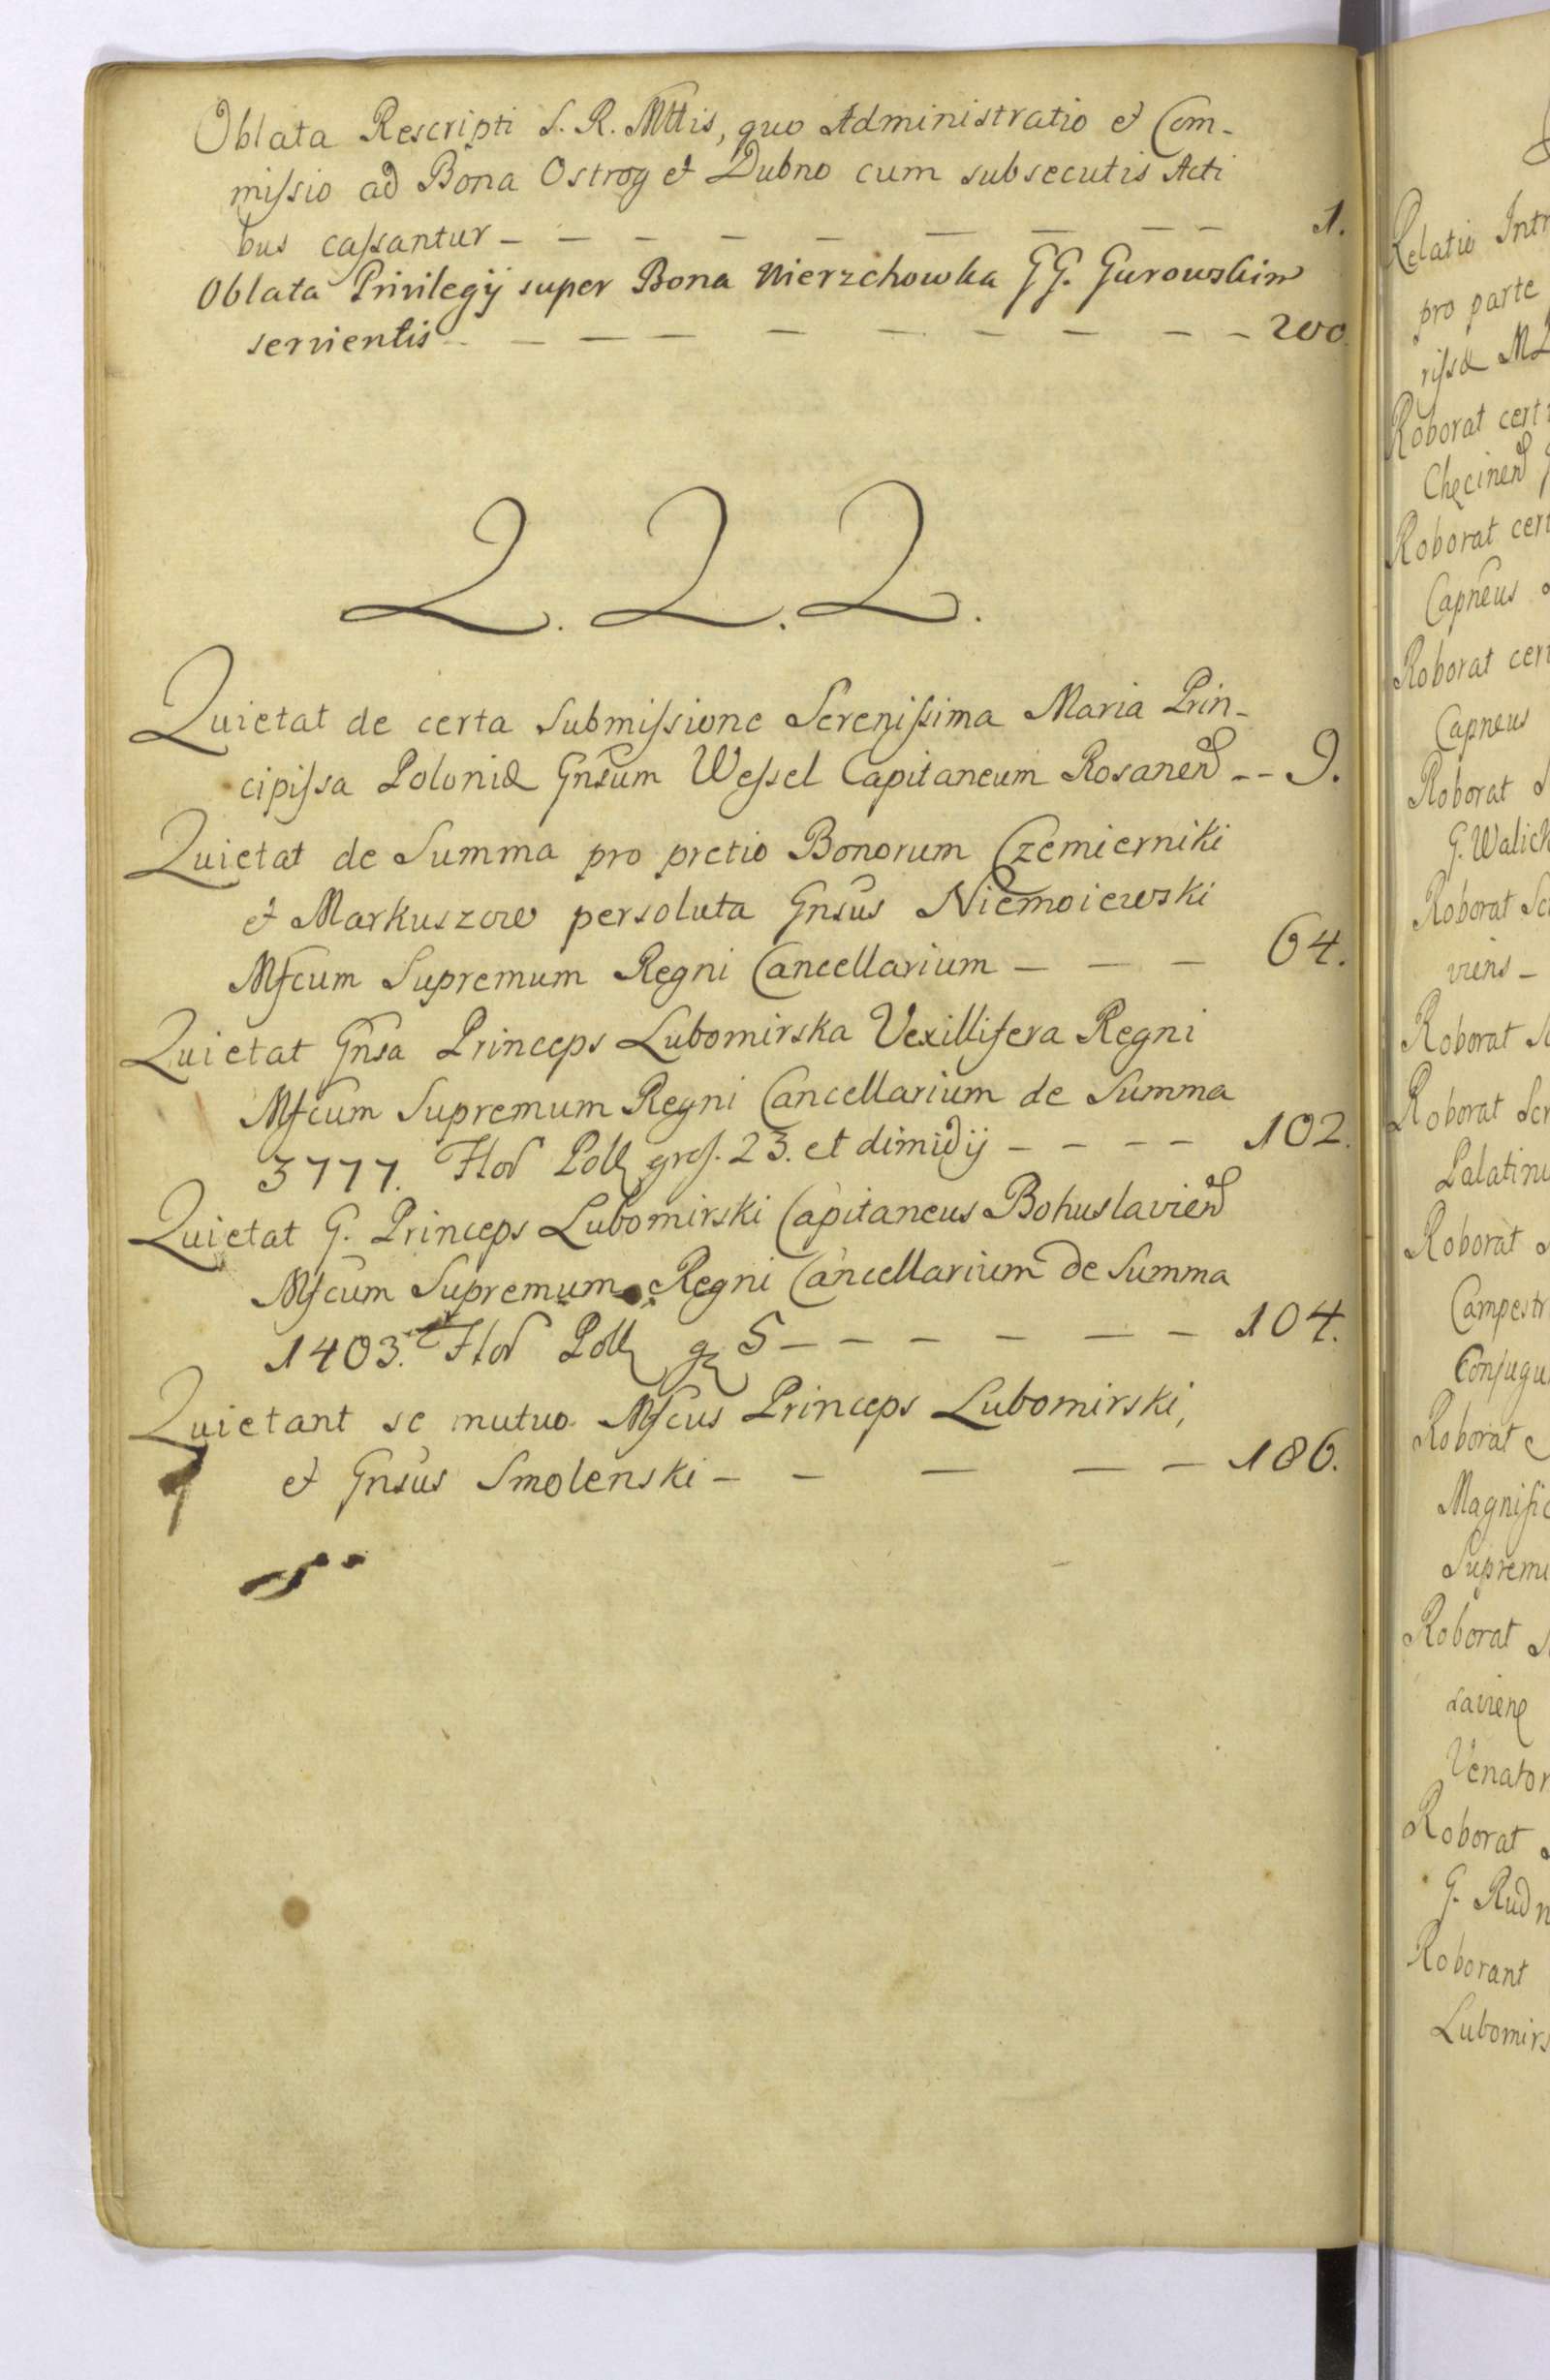 Oblata Rescripti S. R. Mttis, quo Administratio et Com-
missio ad Bona Ostrog et Dubno cum subsecutis Acti
bus cassantur - - - - - - - - - 1.
Oblata Privilegij super Bona Wierzchowka GG. Gurowskim
servientis - - - - - - - - - 200.
Q. Q. Q.
Quietat de certa Submissione Serenissima Maria Prin-
cipissa Poloniæ Gnsum Wessel Capitaneum Rosanen -- 9.
Quietat de Summa pro pretio Bonorum Czemierniki
et Markuszow persoluta Gnsus Niemoiewski
Mfcum Supremum Regni Cancellarium - - - 64.
Quietat Gnsa Princeps Lubomirska Vexillifera Regni
Mfcum Supremum Regni Cancellarium de Summa
3777. Flor Poll gros. 23. et dimidij - - - - 102.
Quietat G. Princeps Lubomirski Capitaneus Bohuslavien
Mfcum Supremum Regni Cancellarium de Summa
1403. Flor Poll g 5 - - - - - - 104.
Quietant se mutuo Mfcus Princeps Lubomirski,
et Gnsus Smolenski - - - - - 186.
Relatio Intr
pro parte
rissæ
Roborat cert
Checinen
Roborat cert
Capneus
Roborat cert
Capneus
Roborat
G. Walick
Roborat Sc
viens -
Roborat
Roborat Scr
Palatinu
Roborat
Campestr
Conjugu
Roborat
Magnific
Supremu
Roborat
Venator
Roborat
G. Rudn
Roborant
Lubomirs